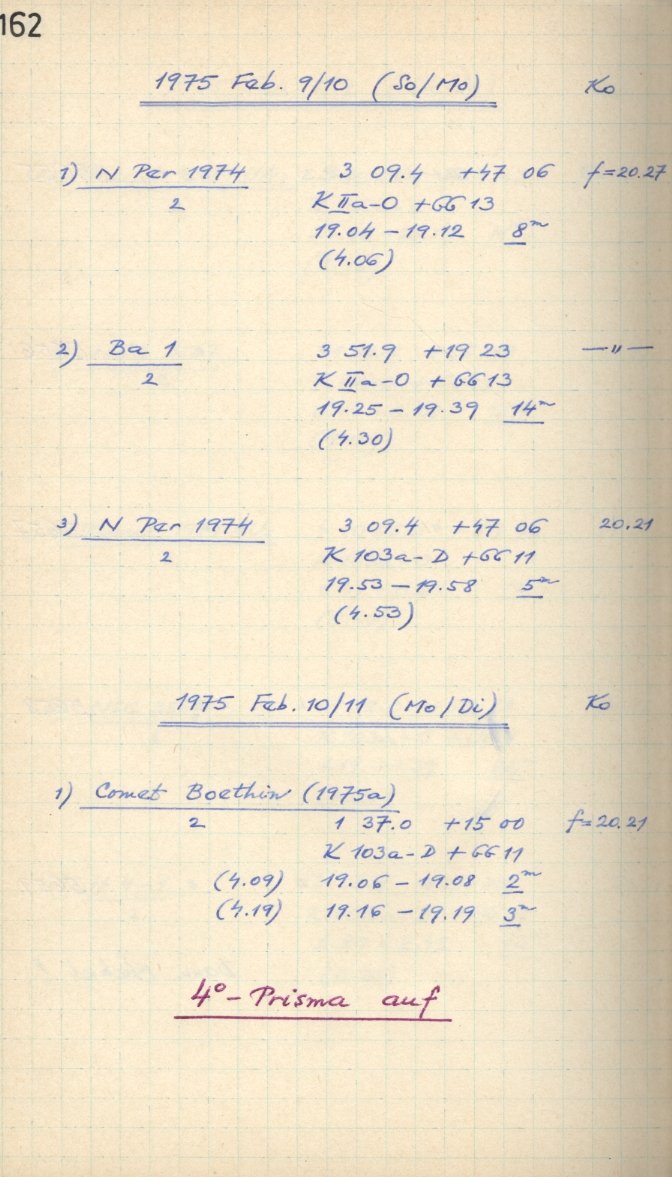 162
1975 Feb. 9/10 (So/Mo) Ko
1) N Per 1974 3 09.4 +47 06 f=20.27
2 K IIa-O +GG13
19.04 - 19.12 8m
(4.06)
2) Ba 1 3 51.9 +19 23 — " —
2 K IIa-O +GG13
19.25 - 19.39 14m
(4.30)
3) N Per 1974 3 09.4 +47 06 20.21
2 K 103a-D +GG11
19.53 - 19.58 5m
(4.53)
1975 Feb. 10/11 (Mo/Di) Ko
1) Comet Boethin (1975a)
2 1 37.0 +15 00 f=20.21
K 103a-D +GG11
(4.09) 19.06 - 19.08 2m
(4.19) 19.16 - 19.19 3m
4°-Prisma auf